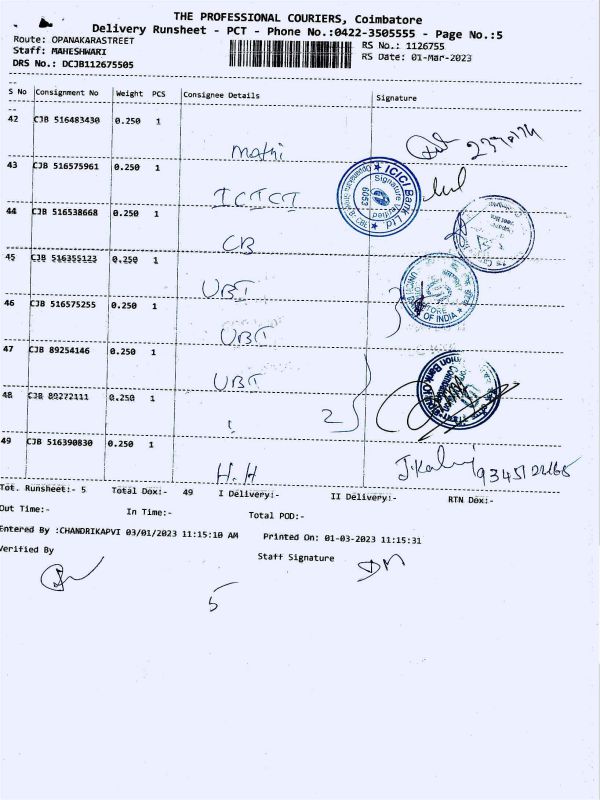 THE PROFESSIONAL COURIERS, Coimbatore
Delivery Runsheet - PCT - Phone No.:0422-3505555 - Page No.:5
Route: OPANAKARASTREET
RS No.: 1126755
Staff: MAHESHWARI
RS Date: 01-Mar-2023
DRS No.: DCJB112675505
S No Consignment No Weight PCS Consignee Details Signature
42 CJB 516483430 0.250 1
mathi
43 CJB 516575961 0.250 1
ICICI
ICICI Bank Ltd
Signature Verified
6053
44 CJB 516538668 0.250 1
CB
45 CJB 516355123 0.250 1
UBI
OF INDIA
46 CJB 516575255 0.250 1
UBI
47 CJB 89254146 0.250 1
UBI
Union Bank Of
48 CJB 89272111 0.250 1
2
49 CJB 516390830 0.250 1
H.H
Tot. Runsheet:- 5 Total Dox:- 49 I Delivery:- II Delivery:- RTN Dox:-
Out Time:- In Time:- Total POD:-
Entered By :CHANDRIKAPVI 03/01/2023 11:15:10 AM Printed On: 01-03-2023 11:15:31
Verified By Staff Signature
DM
5